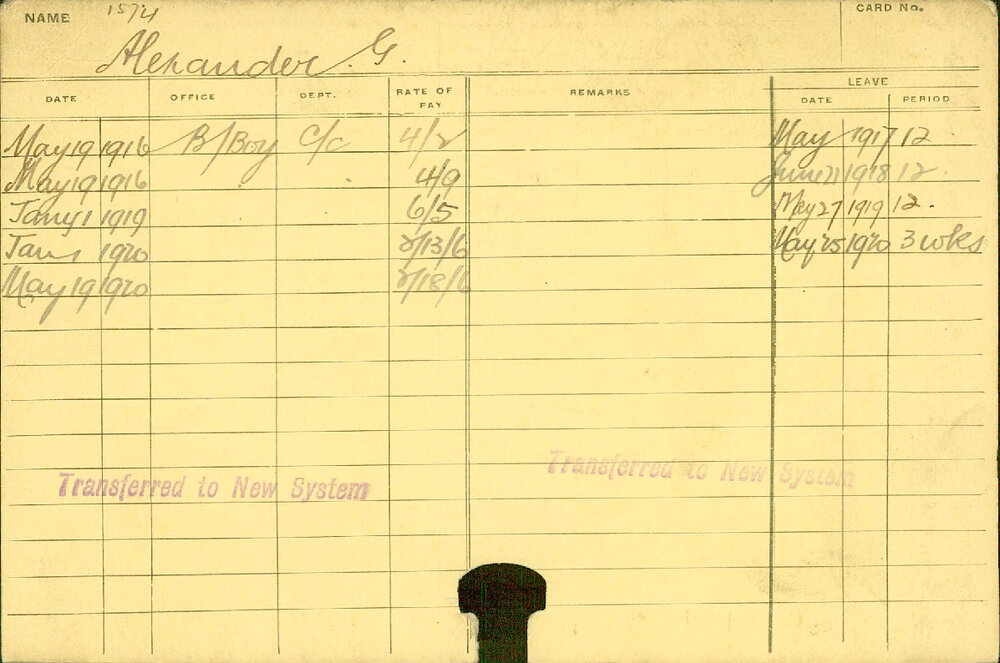 NAME 1574 CARD No.
Alexander. G.
DATE OFFICE DEPT. RATE OF PAY REMARKS LEAVE DATE PERIOD
May 19 1916 B/Boy C/C 4/2 May 1917 12
May 19 1916 4/9 June 21 1918 12.
Jany 1 1919 6/5 May 27 1919 12.
Jan 1 1920 2/13/6 May 25 1920 3 wks
May 19 1920 2/18/6
Transferred to New System
Transferred to New System